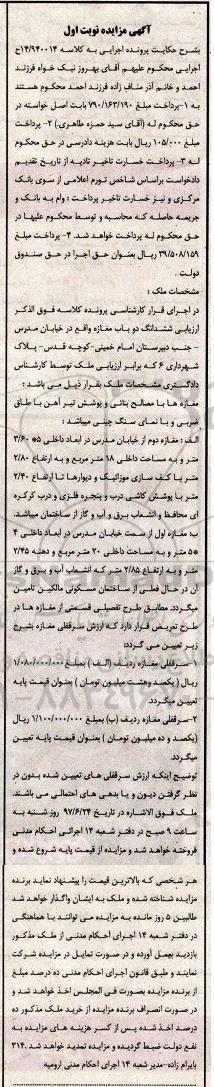 آگهی مزایده نوبت اول
بشرح حکایت پرونده اجرایی به کلاسه ۱۴/۹۴۰۰۱۴ج
اجرایی محکوم علیهم آقای بهروز نیک خواه فرزند
احمد و خانم آذر مناف زاده فرزند احمد محکوم هستند
به ۱-پرداخت مبلغ ۷۹۰/۱۶۳/۱۹۰ بابت اصل خواسته در
حق محکوم له (آقای سید حمزه طاهری.) ۲- پرداخت
مبلغ ۱۰۵/۰۰۰ ریال بابت هزینه دادرسی در حق محکوم
له ۳- پرداخت خسارت تاخیر تادیه از تاریخ تقدیم
دادخواست براساس شاخص تورم اعلامی از سوی بانک
مرکزی و نیز خسارت تاخیر پرداخت : وام به بانک و
جریمه حاصله که محاسبه و توسط محکوم علیها در
حق محکوم له پرداخت خواهد شد. ۴- پرداخت مبلغ
۳۹/۵۰۸/۱۵۹ ریال بعنوان حق اجرا در حق صندوق
دولت .
مشخصات ملک :
در اجرای قرار کارشناسی پرونده کلاسه فوق الذکر
ارزیابی ششدانگ دو باب مغازه واقع در خیابان مدرس
- جنب دبیرستان امام خمینی-کوچه قدس- پلاک
شهرداری ۶ که برابر ارزیابی ملک توسط کارشناس
دادگستری مشخصات ملک بقرار ذیل می باشد :
مغازه ها با مصالح بنائی و پوشش تیر آهن با طاق
ضربی و با نمای سنگ چینی میباشد :
الف : مغازه دوم از خیابان مدرس در ابعاد داخلی ۵* ۳/۶۰
متر و به مساحت داخلی ۱۸ متر مربع و به ارتفاع ۲/۸۰
متر با کف سازی موزائیک و دیوارها تا ارتفاع ۲/۴۰
متر با پوشش کاشی درب و پنجره فلزی و درب کرکره
ای محافظ و انشعاب برق و آب و گاز از ساختمان میباشد.
ب: مغازه اول از سمت خیابان مدرس در ابعاد داخلی ۴
*۵ متر و به مساحت داخلی ۲۰ متر مربع و دهنه ۲/۴۵
متر و به ارتفاع ۲/۸۵ متر که انشعاب آب و برق و گاز
آن در حال فعلی از ساختمان مسکونی مالکین تامین
میگردد. مطابق طرح تفصیلی قسمتی از مغازه ها در
طرح تعریض قرار دارد که ارزش سرقفلی مغازه بشرح
زیر تعیین می گردد:
۱- سرقفلی مغازه ردیف (الف ) بمبلغ ۱/۰۸۰/۰۰۰/۰۰۰
ریال ( یکصد وهشت میلیون تومان ) بعنوان قیمت پایه
تعیین میگردد.
۲-سرقفلی مغازه ردیف (ب) بمبلغ ۱/۱۰۰/۰۰۰/۰۰۰ ریال
(یکصد و ده میلیون تومان ) بعنوان قیمت پایه تعیین
میگردد.
توضیح اینکه ارزش سرقفلی های تعیین شده بدون در
نظر گرفتن دیون و یا بدهی های احتمالی می باشند.
ملک فوق الاشاره در تاریخ ۹۷/۶/۲۴ روز شنبه به
ساعت ۹ صبح در دفتر شعبه ۱۴ اجرائی احکام مدنی
فروخته خواهد شد و مزایده از قیمت پایه شروع شده و
هر شخصی که بالاترین قیمت را پیشنهاد نماید برنده
مزایده شناخته شده و ملک به ایشان واگذار خواهد شد
طالبین ۵ روز مانده به مزایده می توانند با هماهنگی
در دفتر شعبه ۱۴ اجرای احکام مدنی از ملک مذکور
بازدید بعمل آورده و در صورت تمایل در مزایده شرکت
نمایند و طبق قانون اجرای احکام مدنی ده درصد مبلغ
از برنده مزایده بصورت فی المجلس اخذ خواهد شد و
در صورت انصراف برنده مزایده از خرید ملک مذکور ده
درصد اخذ شده پس از کسر هزینه های مزایده به
نفع دولت ضبط گردیده و مزایده تمدید خواهد شد .۳۱۴
بایرام زاده-مدیر شعبه ۱۴ اجرای احکام مدنی ارومیه